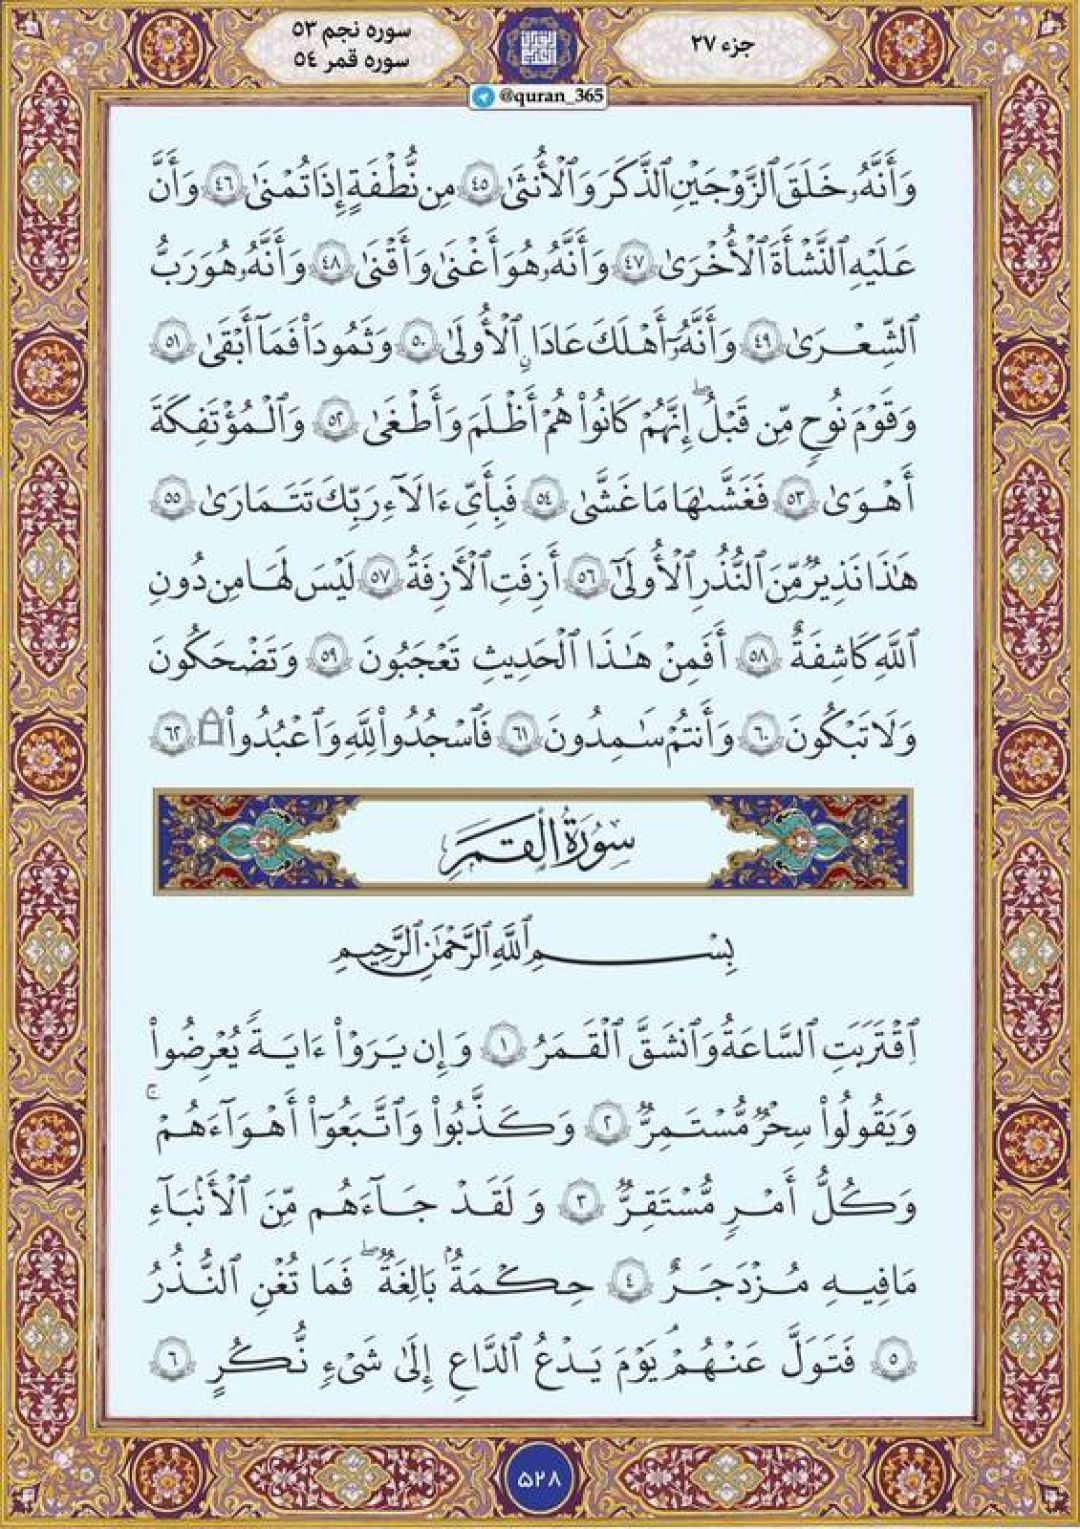 سوره نجم ٥٣
سوره قمر ٥٤
جزء ٢٧
@quran_365
وَأَنَّهُۥ خَلَقَ ٱلزَّوْجَيْنِ ٱلذَّكَرَ وَٱلْأُنثَىٰ ٤٥ مِن نُّطْفَةٍ إِذَا تُمْنَىٰ ٤٦ وَأَنَّ
عَلَيْهِ ٱلنَّشْأَةَ ٱلْأُخْرَىٰ ٤٧ وَأَنَّهُۥ هُوَ أَغْنَىٰ وَأَقْنَىٰ ٤٨ وَأَنَّهُۥ هُوَ رَبُّ
ٱلشِّعْرَىٰ ٤٩ وَأَنَّهُۥٓ أَهْلَكَ عَادًا ٱلْأُولَىٰ ٥٠ وَثَمُودَا۟ فَمَآ أَبْقَىٰ ٥١
وَقَوْمَ نُوحٍ مِّن قَبْلُ ۖ إِنَّهُمْ كَانُوا۟ هُمْ أَظْلَمَ وَأَطْغَىٰ ٥٢ وَٱلْمُؤْتَفِكَةَ
أَهْوَىٰ ٥٣ فَغَشَّىٰهَا مَا غَشَّىٰ ٥٤ فَبِأَىِّ ءَالَآءِ رَبِّكَ تَتَمَارَىٰ ٥٥
هَٰذَا نَذِيرٌ مِّنَ ٱلنُّذُرِ ٱلْأُولَىٰٓ ٥٦ أَزِفَتِ ٱلْأَزِفَةُ ٥٧ لَيْسَ لَهَا مِن دُونِ
ٱللَّهِ كَاشِفَةٌ ٥٨ أَفَمِنْ هَٰذَا ٱلْحَدِيثِ تَعْجَبُونَ ٥٩ وَتَضْحَكُونَ
وَلَا تَبْكُونَ ٦٠ وَأَنتُمْ سَٰمِدُونَ ٦١ فَٱسْجُدُوا۟ لِلَّهِ وَٱعْبُدُوا۟ ۩ ٦٢
سُورَةُ الْقَمَرِ
بِسْمِ ٱللَّهِ ٱلرَّحْمَٰنِ ٱلرَّحِيمِ
ٱقْتَرَبَتِ ٱلسَّاعَةُ وَٱنشَقَّ ٱلْقَمَرُ ١ وَإِن يَرَوْا۟ ءَايَةً يُعْرِضُوا۟
وَيَقُولُوا۟ سِحْرٌ مُّسْتَمِرٌّ ٢ وَكَذَّبُوا۟ وَٱتَّبَعُوٓا۟ أَهْوَآءَهُمْ ۚ
وَكُلُّ أَمْرٍ مُّسْتَقِرٌّ ٣ وَلَقَدْ جَآءَهُم مِّنَ ٱلْأَنۢبَآءِ
مَا فِيهِ مُزْدَجَرٌ ٤ حِكْمَةٌۢ بَٰلِغَةٌ ۖ فَمَا تُغْنِ ٱلنُّذُرُ
٥ فَتَوَلَّ عَنْهُمْ ۘ يَوْمَ يَدْعُ ٱلدَّاعِ إِلَىٰ شَىْءٍ نُّكُرٍ ٦
٥٢٨